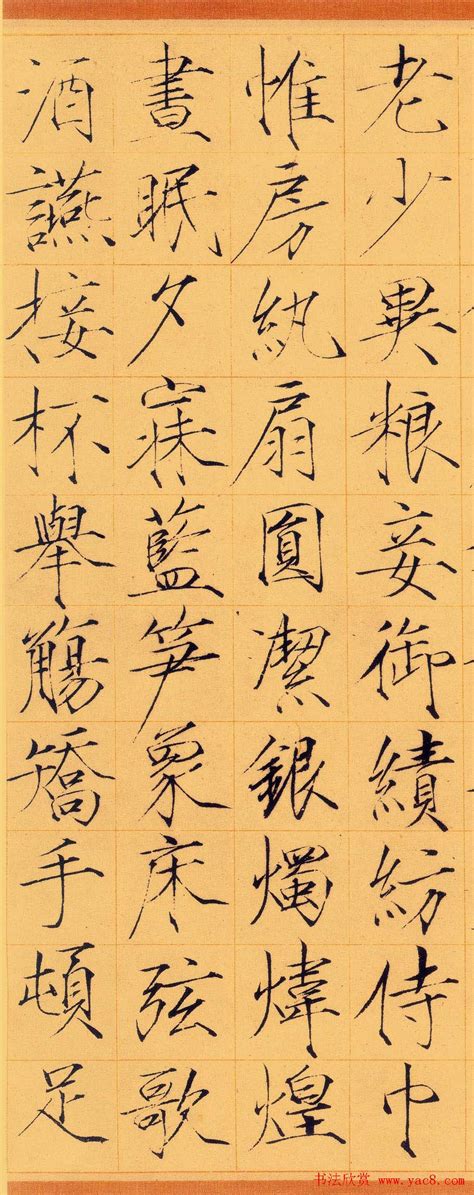 老少異粮妾御績紡侍巾
帷房紈扇圓潔銀燭煒煌
晝眠夕寐藍笋象床弦歌
酒讌接杯舉觴矯手頓足
书法欣赏 www.yac8.com